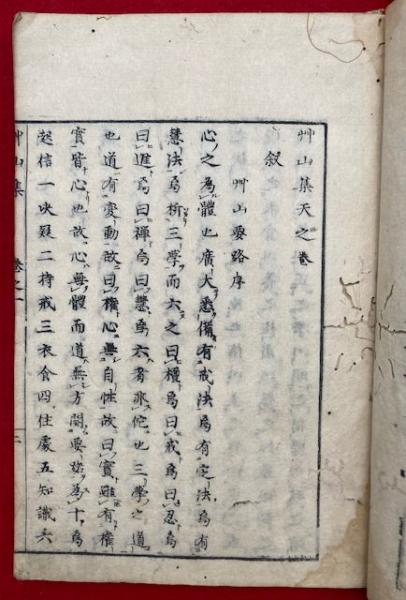 艸山集天之卷
敘
艸山要路序
心之為體也廣大悉備有戒法焉有定法焉有
慧法焉析三學而六之曰檀焉曰戒焉曰忍焉
曰進焉曰禪焉曰慧焉六者非佗也三學之道
也道有變動故曰權心無自性故曰實雖有權
實皆心也故心無體而道無方開要路為十焉
起信一決疑二持戒三衣食四住處五知識六
艸山集 卷之一